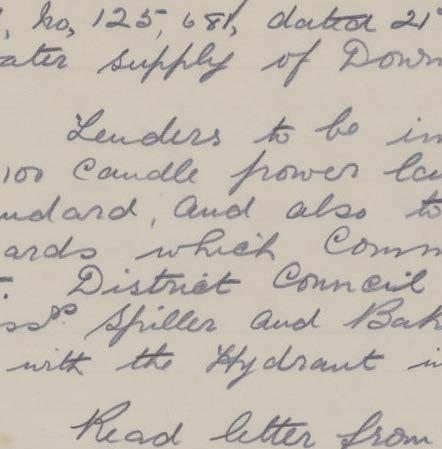 , No, 125,681, dated 21
ater supply of Down
Tenders to be in
100 Candle power la
ndard, and also to
ards which Comm
District Council
ss Spiller and Bak
with the Hydrant in
Read letter from